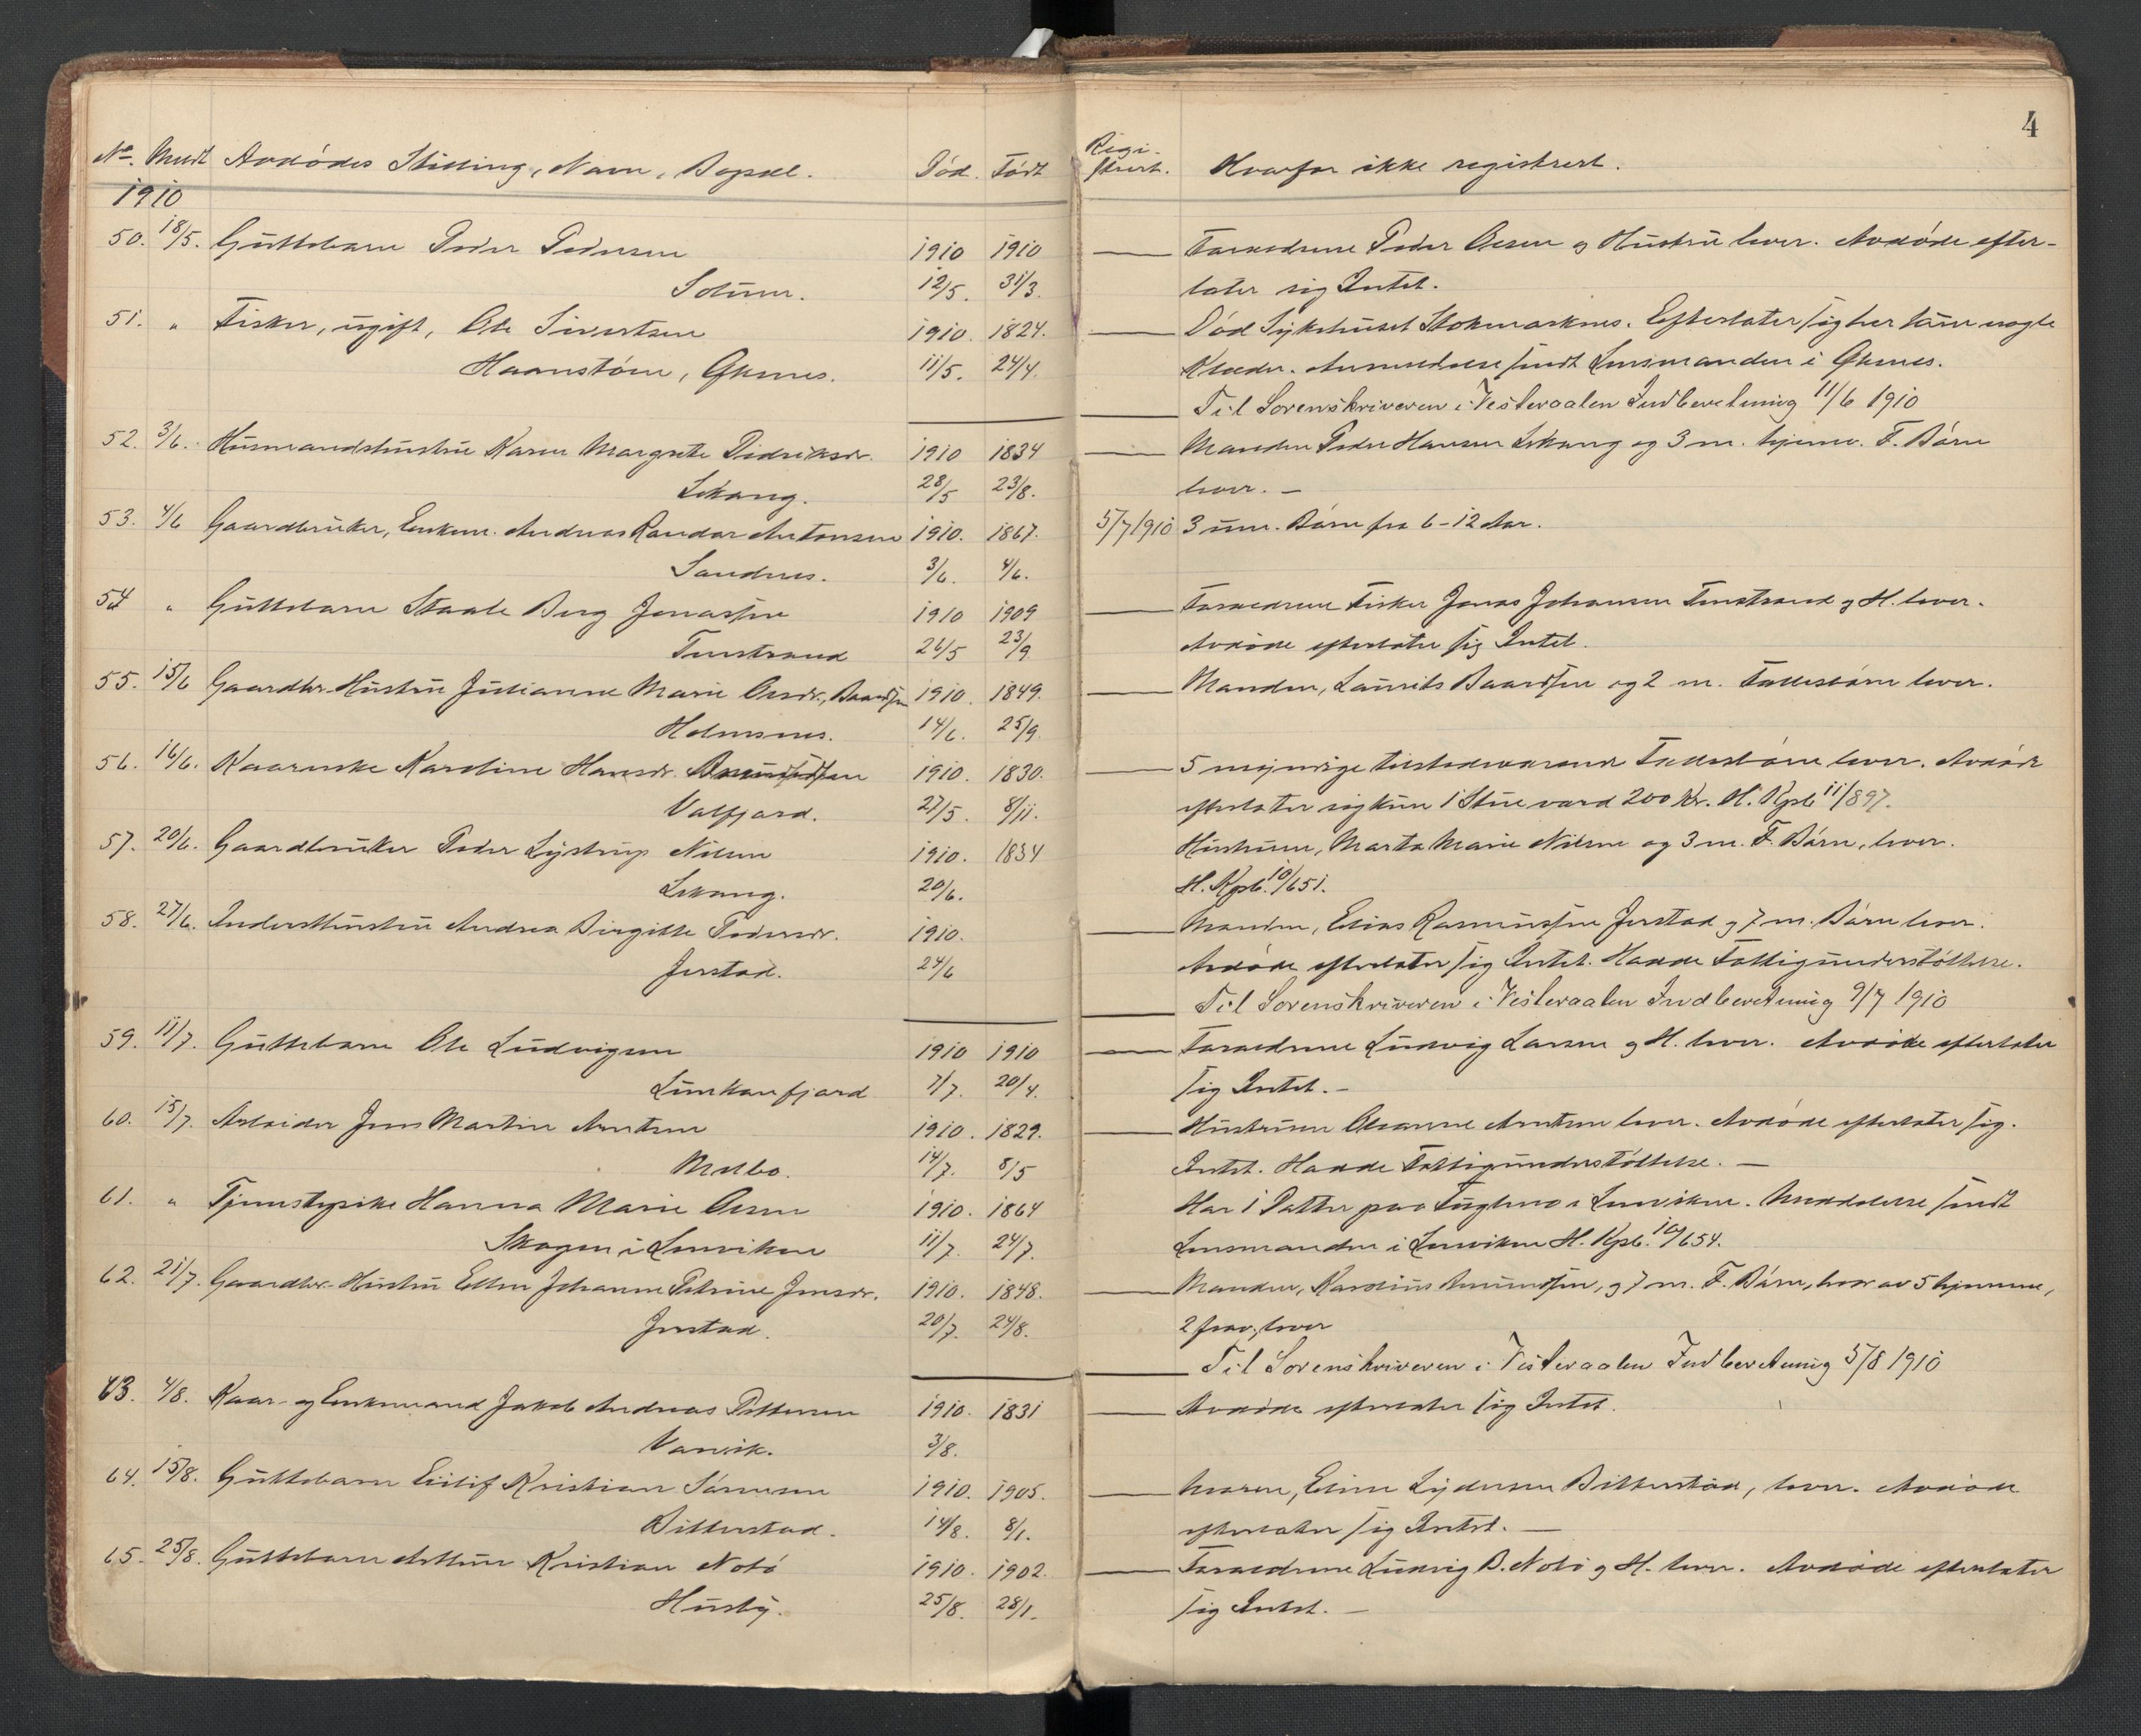 4
No. Meldt Avdødes Stilling, Navn, Bopæl. Død. Født Regi-strert. Hvorfor ikke registrert.
1910
50. 18/5. Guttebarn Peder Pedersen 1910 1910 Forældrene Peder Olsen og Hustru lever. Avdøde efter-
12/5. 31/3. later sig Intet.
51. " Fisker, ugift, Ole Sivertsen 1910. 1824. Død Sykehuset Stokmarknes. Efterlater sig her kun nogle
Øksnes. 11/5. 24/4. Klæder. Anmeldelse sendt Lensmanden i Øksnes.
Til Sorenskriveren i Vesteraalen Indberetning 11/6 1910
52. 3/6. Husmandshustru Karen Margrete Didriksdr. 1910 1834 Manden Peder Hansen Lekang og 3 m. hjemv. F. Børn
Lekang. 28/5 23/8. lever. —
53. 4/6 Gaardbruker, Enkem. Andreas Randar Antonsen 1910. 1867. 5/7 1910 3 um. Børn fra 6-12 Aar.
Sandnes. 3/6. 4/6.
54 " Guttebarn Staale Berg Jonassen 1910 1909 Forældrene Fisker Jonas Johansen Tunstrand og H. lever.
Tunstrand 26/5 23/9 Avdøde efterlater sig Intet.
55. 15/6 Gaardbr. Hustru Julianne Marie Olsdr., Baardsen 1910. 1849. Manden, Laurits Baardsen og 2 m. Fællesbørn lever.
Holmsnes. 14/6. 25/9.
56. 16/6. Kaarenke Karoline Hansdr. 1910. 1830. 5 myndige tilstedeværende Fællesbørn lever. Avdøde
Valfjord. 27/5. 8/11. efterlater sig kun 1 Stue værd 200 Kr. H. Kpb. 11/897.
57. 20/6. Gaardbruker Peder Lystrup Nilsen 1910. 1834 Hustruen, Marta Marie Nilsen og 3 m. F. Børn, lever.
Lekang. 20/6. H. Kpb. 10/651.
58. 27/6. Inderst hustru Andrea Birgitte Pedersdr. 1910. Manden, Elias Rasmussen Jerstad og 7 m. Børn lever.
Jerstad. 24/6 Avdøde efterlater sig Intet. Hadde Fattigunderstøttelse.
Til Sorenskriveren i Vesteraalen Indberetning 9/7 1910
59. 11/7. Guttebarn Ole Ludvigsen 1910 1910 Forældrene Ludvig Larsen og H. lever. Avdøde efterlater
Lunkanfjord 7/7. 20/4. sig Intet. —
60. 15/7. Arbeider Jens Martin Arntsen 1910. 1829. Hustruen Oleanne Arntsen lever. Avdøde efterlater sig
Melbo. 14/7. 8/5 Intet. Hadde Fattigunderstøttelse. —
61. " Tjenestepike Hanna Marie Olsen 1910. 1864 Har 1 Datter paa Fuglevo i Lenviken. Meddelelse sendt
Skogen i Lenviken 11/7. 24/7. Lensmanden i Lenviken H. Kpb. 10/654.
62. 21/7. Gaardbr. Hustru Ellen Johanne Petrine Jensdr. 1910. 1848. Manden, Karolius Amundsen, og 7 m. F. Børn, hvorav 5 hjemme,
Jerstad. 20/7. 24/8. 2 frav., lever
Til Sorenskriveren i Vesteraalen Indberetning 5/8 1910
63. 4/8. Kaar- og Enkemand Jakob Andreas Pettersen 1910. 1831 Avdøde efterlater sig Intet.
Varvik. 3/8.
64. 15/8. Guttebarn Eilif Kristian Sørensen 1910. 1905. Moren, Eline Lydersen Bitterstad, lever. Avdøde
Bitterstad. 14/8. 8/1. efterlater sig Intet. —
65. 25/8. Guttebarn Arthur Kristian Notø 1910. 1902. Forældrene Ludvig B. Notø og H. lever. Avdøde efterlater
Husby. 25/8. 28/1. sig Intet. —